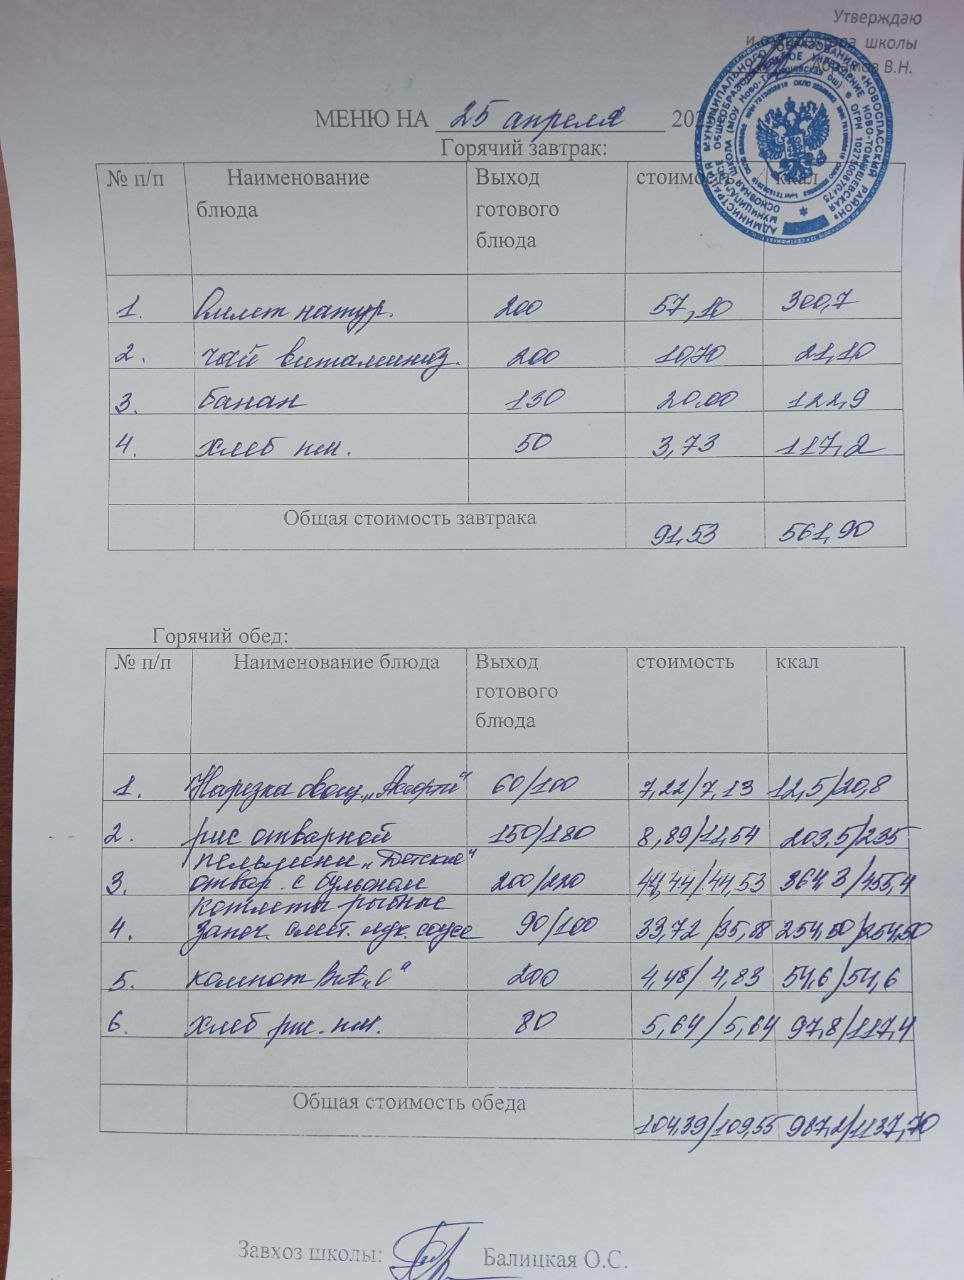 Утверждаю
школы
Абрамов В.Н.
МЕНЮ НА 25 апреля 202
Горячий завтрак:
№ п/п Наименование блюда Выход готового блюда стоимость ккал
1. Омлет натур. 200 57,10 300,7
2. чай витаминиз. 200 10,70 21,10
3. банан 130 20.00 122,9
4. хлеб пш. 50 3,73 117,2
Общая стоимость завтрака 91,53 561,90
Горячий обед:
№ п/п Наименование блюда Выход готового блюда стоимость ккал
1. Нарезка овощ. „Ассорти“ 60/100 7,22/7,13 12,5/20,8
2. рис отварной 150/180 8,89/11,54 203,5/235
пельмени „Детские“
3. отвар. с бульоном 200/220 44,44/44,53 364,3/455,4
котлеты рыбные
4. запеч. смет. лук. соусе 90/100 33,72/35,88 254,50/254,50
5. компот Вит „С“ 200 4,48/4,83 54,6/54,6
6. хлеб рж. пш. 80 5,64/5,64 97,8/117,4
Общая стоимость обеда 104,39/109,55 987,2/1137,70
Завхоз школы: Балицкая О.С.